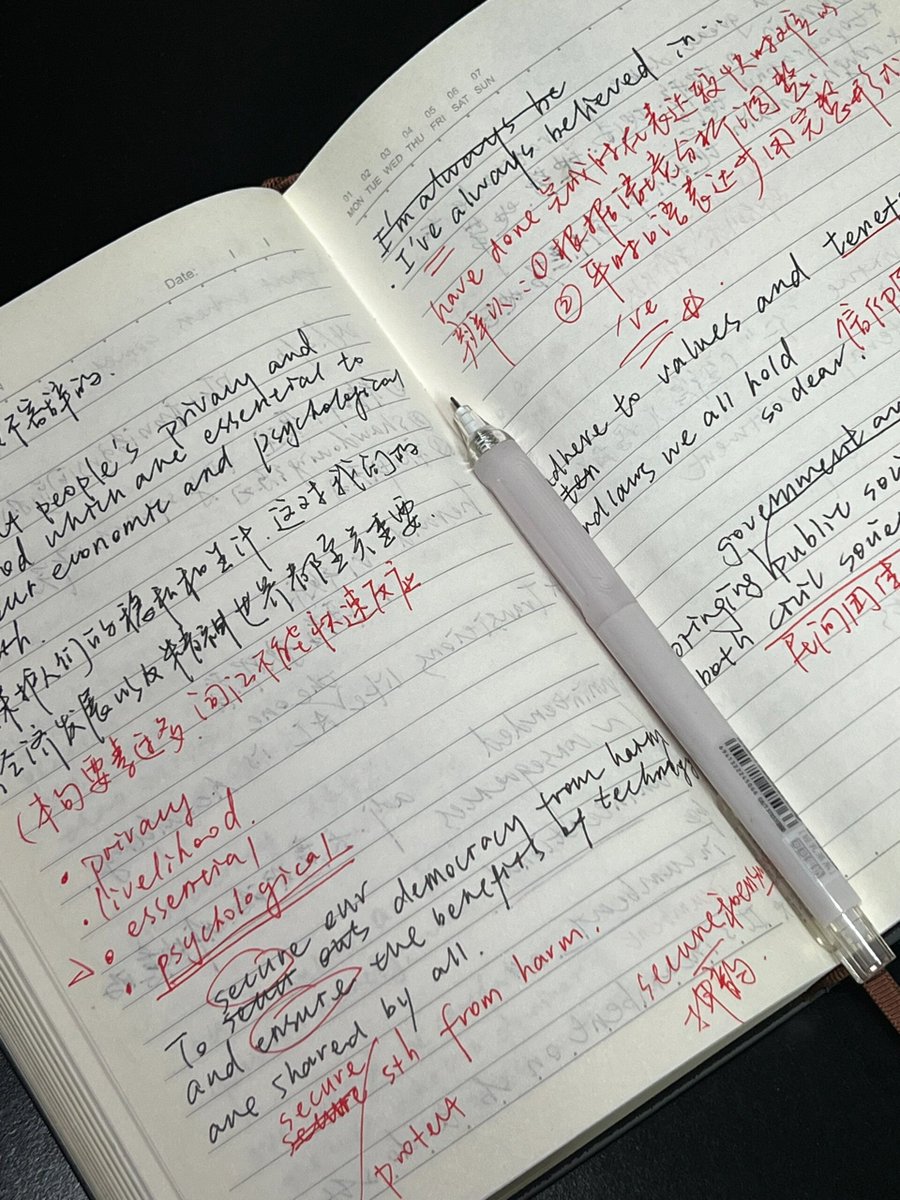 Date:
不容辞的.
people's privacy and
which are essential to
economic and psychological
保护人们的隐私和生计.这对我们的
经济发展以及精神世界都至关重要.
(本句要素过多,词汇不能快速反应
• privacy
• livelihood.
• essential
• psychological
To secure our democracy from harm
and ensure the benefits of technology
are shared by all.
secure sth from harm.
protect
secure
01 02 03 04 05 06 07
MON TUE WED THU FRI SAT SUN
I'm always be
I've always believed in
have done 完成时在表达较快时
辨认:① 根据语境分析调整
② 平时口语表达多用完整形式
've
to values and tenets
and laws we all hold so dear.
government and
bringing public
both civil
民间团体